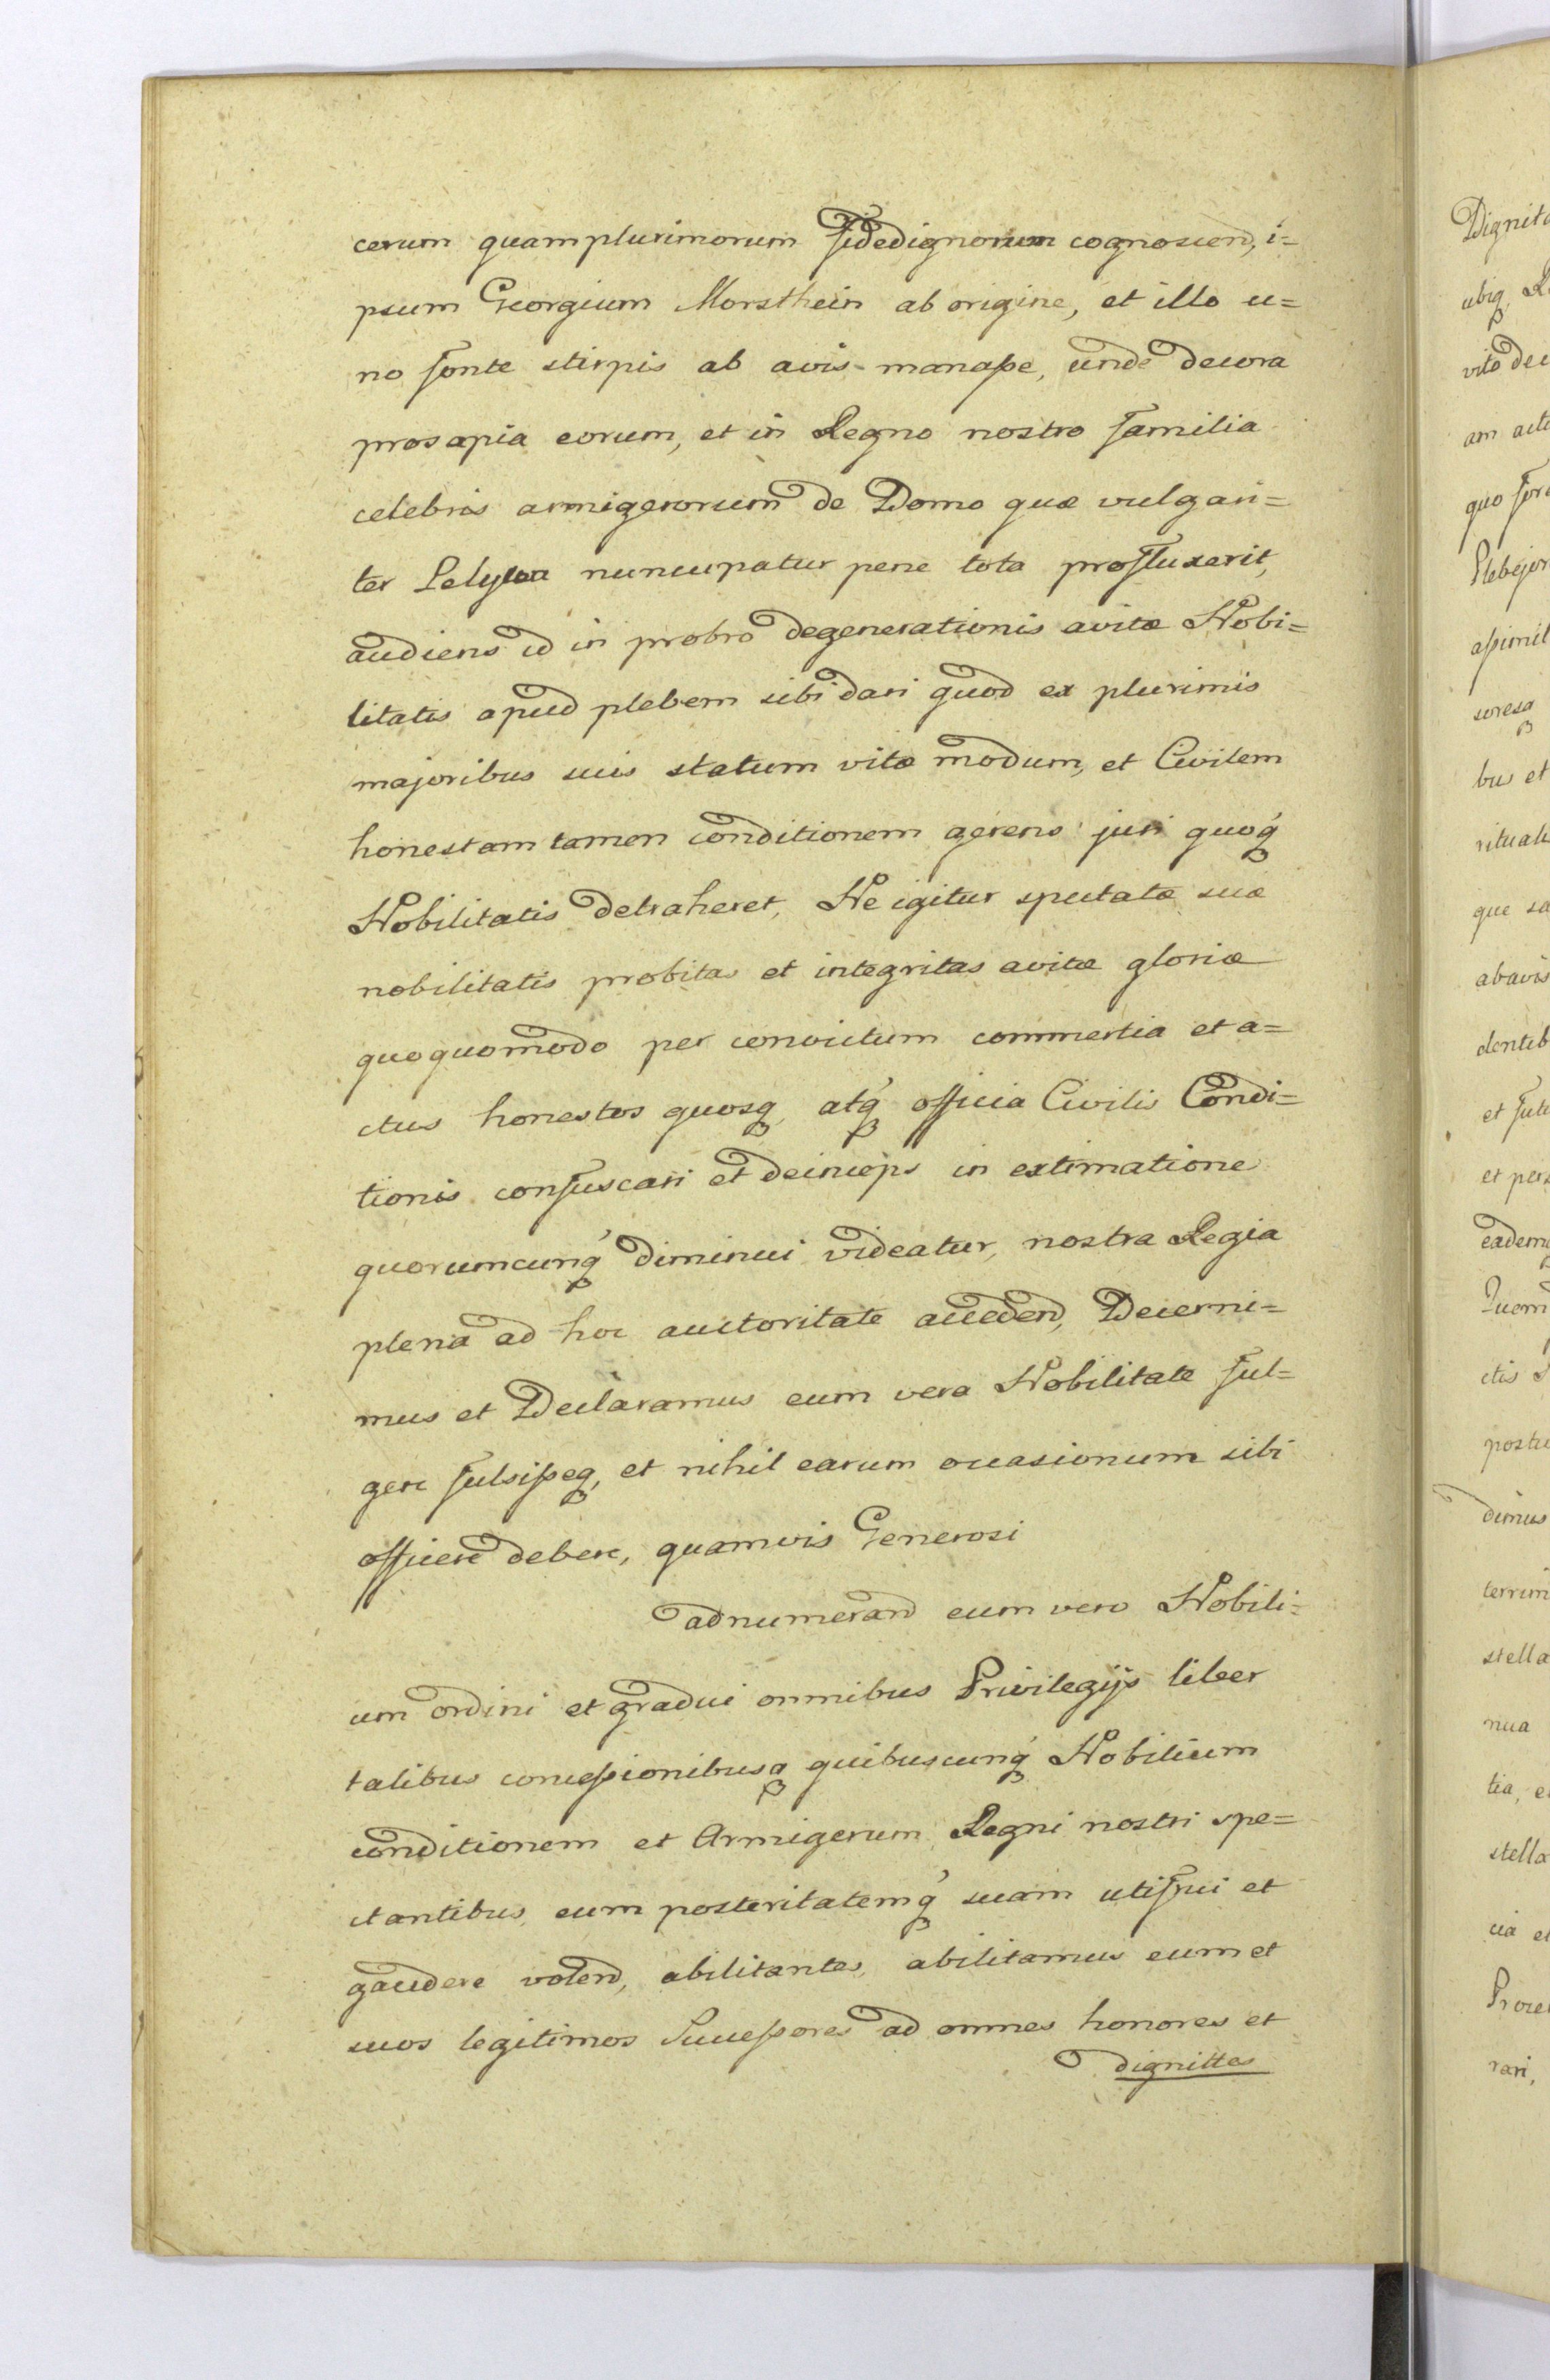 cerum quamplurimorum fidedignorum cognoscend, i=
psum Georgium Morsthein ab origine, et illo u=
no fonte stirpis ab avis manaße, unde decora
prosapia eorum, et in Regno nostro familia
celebris armigerorum de Domo quæ vulgari=
ter Lelywa nuncupatur pene tota profluxerit,
audiens id in probro degenerationis avitæ Nobi=
litatis apud plebem sibi dari quod ex plurimis
majoribus suis statum vitæ modum, et Civilem
honestam tamen conditionem gerens juri quoq́
Nobilitatis detraheret, Ne igitur spectatæ suæ
nobilitatis probitas et integritas avitæ gloriæ
quoquomodo per convictum commertia et a=
ctus honestos quosq, atq́ officia Civilis Condi=
tionis confuscari et deinceps in extimatione
quorumcunq́ diminui videatur, nostra Regia
plena ad hoc auctoritate accedend, Decerni=
mus et Declaramus eum vera Nobilitate ful=
gere fulsißeq, et nihil earum occasionum sibi
officere debere, quamvis Generosi
adnumerand eum vero Nobili=
um ordini et gradui omnibus Privilegijs liber
talibus conceßionibusq quibuscunq́ Nobilium
conditionem et Armigerum Regni nostri spe=
ctantibus eum posteritatemq́ suam uti frui et
gaudere volend, abilitantes, abilitamus eum et
suos legitimos Succeßores ad omnes honores et
dignittes
Dignita
ubiq, Re
vito dec
am acte
quo fore
Plebejor
aßimil
soresq
bus et
rituali
que sa
abavis
dentib
et futu
et pers
eademq
Quem
ctis
poster
dimus
terrim
stella
nua
tia, e
stella
cia et
Proce
rari,